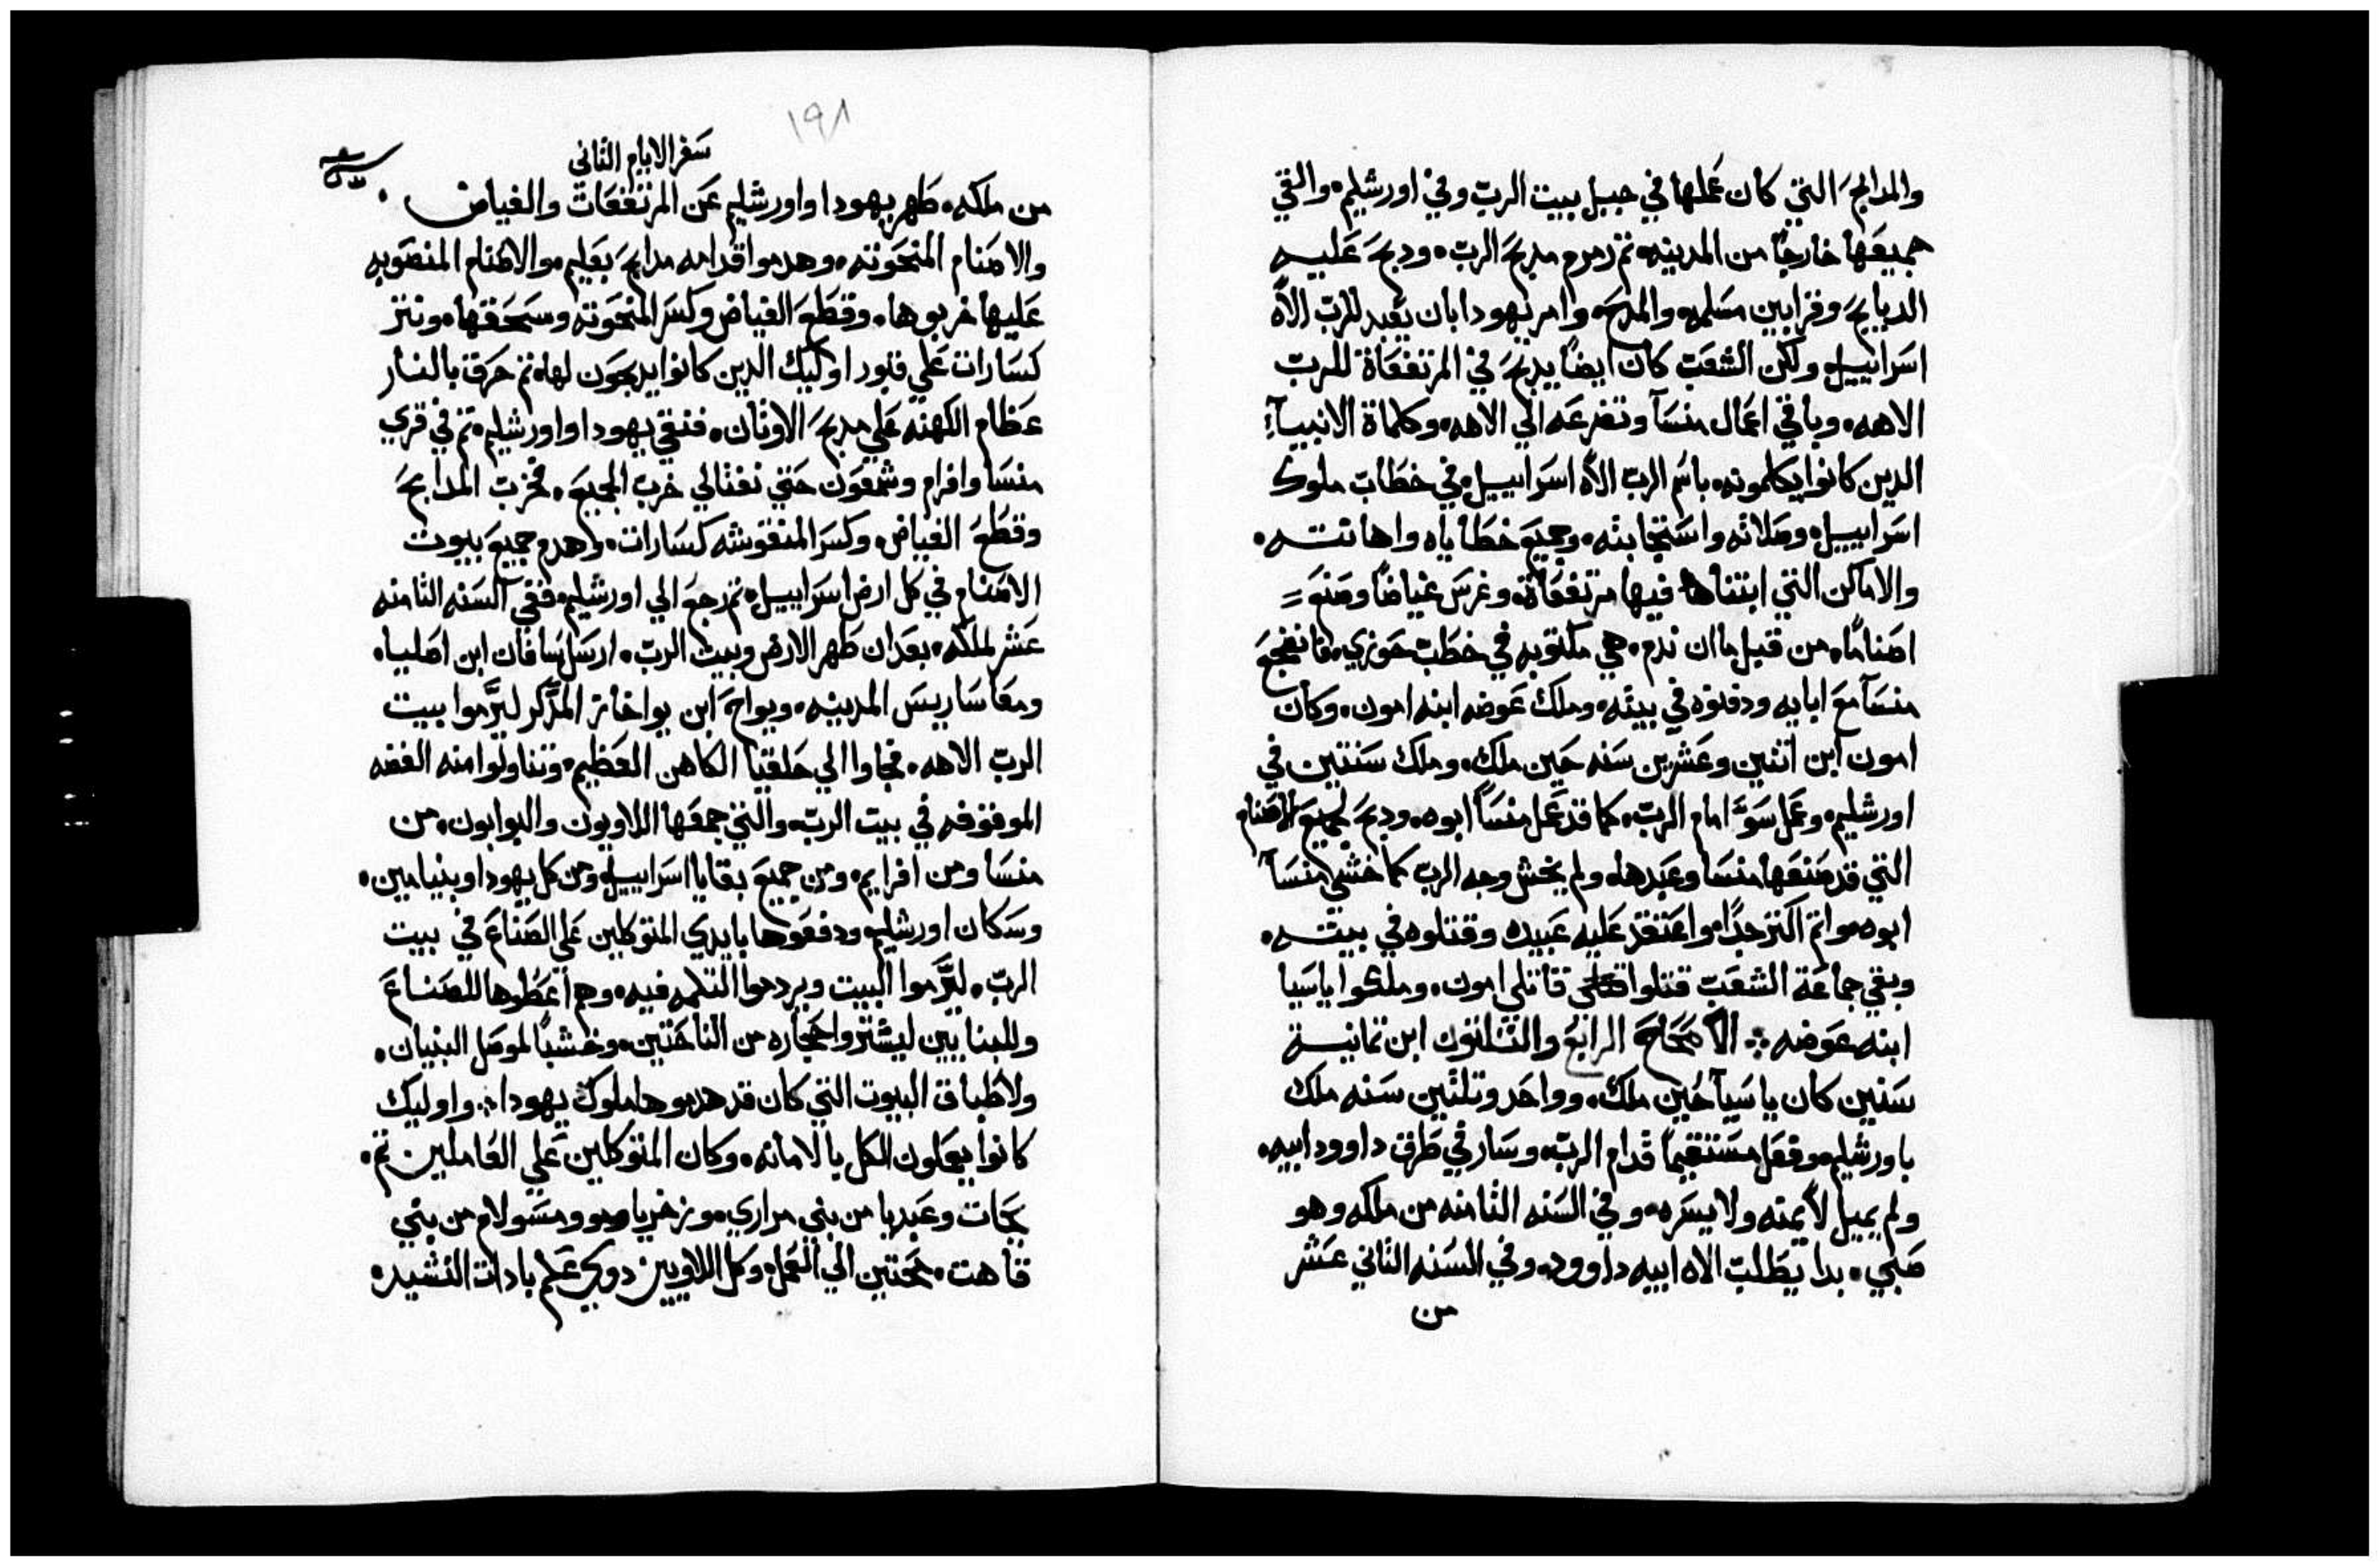 والمدابح التي كان عملها في جبل بيت الرب وفي اورشليم. والقي
جميعها خارجًا من المدينه. تم رمرم مدبح الرب. ودبح عليه
الدبايح وقرابين مسلمه والمدحه. وامر يهودا بان يعبد للرب الاه
اسراييل. ولكن الشعب كان ايضًا يدبح في المرتفعاة للرب
الاهه. وباقي اعمال منسآ وتضرعه الي الاهه. وكلماة الانبيآء
الدين كانوا يكلمونه. باسم الرب الاه اسراييل. في خطاب ملوك
اسراييل. وصلاته واستجابته. وجميع خطاياه واهانته.
والاماكن التي ابتناها فيها مرتفعاة. وغرس غياضًا وصنع =
اصنامًا. من قبل ما ان ندم. هي مكتوبه في خطب حوزي. فانضجع
منسآ مع ابايه ودفنوه في بيته. وملك عوضه ابنه امون. وكان
امون ابن اتنين وعشرين سنه حين ملك. وملك سنتين في
اورشليم. وعمل سوء امام الرب. كما قد عمل منسآ ابوه. ودبح لجميع الاصنام
التي قد صنعها منسا وعبدها. ولم يخش وجه الرب كما خشي منسآ
ابوه. واتم اكتر جدًا. واعتقد عليه عبيده وقتلوه في بيته.
وبقي جماعة الشعب قتلوا قاتلي امون. وملكوا ياسيا
ابنه عوضه ∴ الاصحاح الرابع والتلاتون ابن تمانية
سنين كان ياسيآ حين ملك. وواحد وتلتين سنه ملك
باورشليم. وفعل مستقيمًا قدام الرب. وسار في طرق داوود ابيه.
ولم يميل لا يمنه ولا يسره. وفي السنه التامنه من ملكه وهو
صبي. بدا يطلب الاه ابيه داوود. وفي السنه التاني عشر
من
١٩٨
سفر الايام الثاني
من ملكه. طهر يهودا واورشليم عن المرتفعات والغياض.
والاصنام المنحوته. وهدموا قدامه مدابح بعليم. والاصنام المنصوبه
عليها خربوها. وقطع الغياض وكسر المنحوته وسحقها. ونتر
كسارات علي قبور اوليك الدين كانوا يدبحون لها. تم حرق بالنار
عظام الكهنه علي مدبح الاوتان. فنقي يهودا واورشليم. تم في قري
منسا وافرام وشمعون حتي نفتالي خرب الجميع. فخرب المدابح
وقطع الغياض. وكسر المنقوشه كسارات. واهدم جميع بيوت
الاصنام في كل ارض اسراييل. تم رجع الي اورشليم. ففي السنه التامنه
عشر لملكه. بعد ان طهر الارض وبيت الرب. ارسل سافان ابن اصليا.
ومعاسا ريس المدينه. ويواح ابن يواخاز المدكر ليرموا بيت
الرب الاهه. فجاوا الي حلقيا الكاهن العظيم. وتناولوا منه الفضه
الموقوفه في بيت الرب. والتي جمعها اللاويون والبوابون. من
منسا ومن افرايم. ومن جميع بقايا اسراييل. ومن كل يهودا وبنيامين.
وسكان اورشليم. ودفعوها بايدي المتوكلين علي الصناع في بيت
الرب. ليرموا البيت ويردموا التلمه فيه. وهم اعطوها للصناع
وللبنايين ليشتروا حجاره من الناحتين. وخشبًا لموصل البنيان.
ولاطباق البيوت التي كان قد هدموها ملوك يهودا ∴ واوليك
كانوا يعملون الكل بالامانه. وكان المتوكلين علي العاملين تم.
يحات وعبديا من بني مراري. وزخريا ومسولام من بني
قاهت. محتين الي العمل. وكل اللاويين دوي علم بادات النشيد.